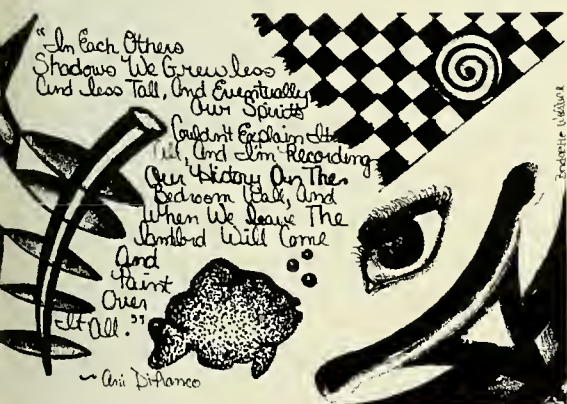 "In Each Others
Shadows We Grew less
and less Tall, And Eventually
Our Spirits
Couldn't Explain It
All, And I'm Recording
Our History On The
Bedroom Wall, and
When We leave The
landlord Will Come
And
Paint
Over
It all."
~ Ani Difranco